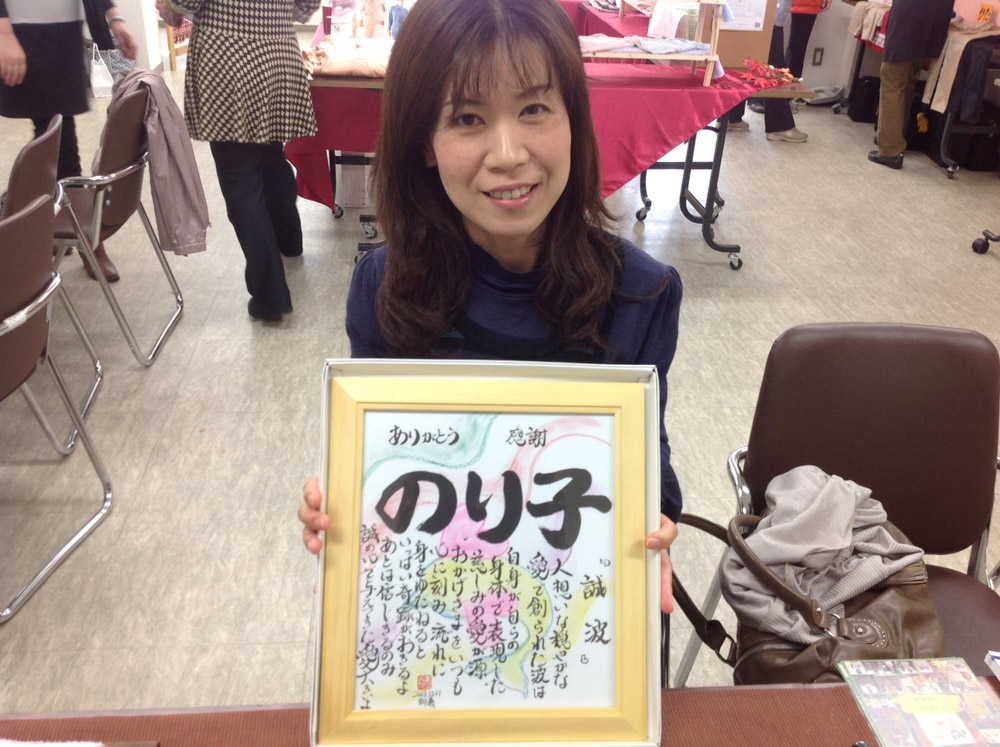 ありがとう
感謝
のり子
「誠波」
人想いな穏やかな
愛で創られた波は
自身が自らの
身体で表現した
慈しみの愛が源
おかげさまをいつも
心に刻み流れに
身をゆだねると
いっぱい奇跡がおきるよ
あとは信じきるのみ
誠の心で